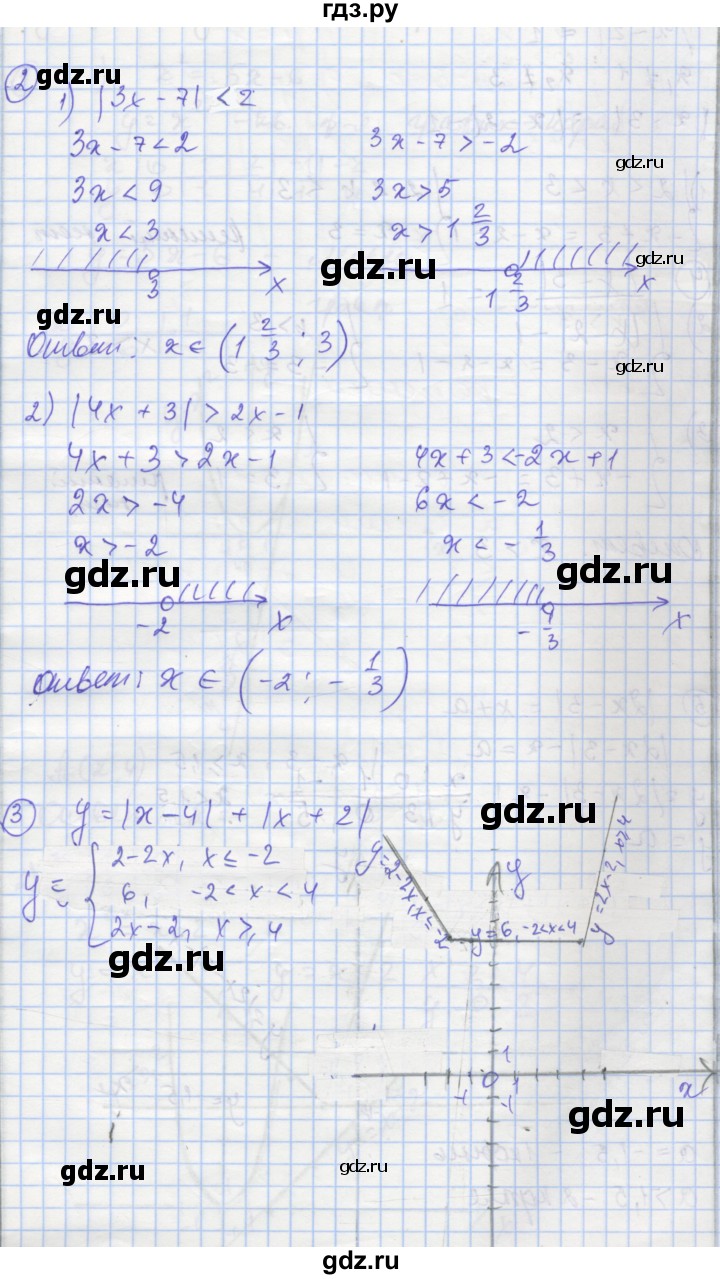 гдз.ру
gdz.ru
2
1) |3x - 7| < 2
3x - 7 < 2    3x - 7 > -2
gdz.ru
3x < 9    3x > 5
x < 3    x > 1 2/3
gdz.ru
gdz.ru
3    x    1 2/3    x
Ответ: x ∈ (1 2/3 ; 3)
gdz.ru
2) |4x + 3| > 2x - 1
4x + 3 > 2x - 1    4x + 3 < -2x + 1
2x > -4    6x < -2
x > -2    x < - 1/3
gdz.ru    gdz.ru
-2    x    - 1/3    x
Ответ: x ∈ (-2 ; - 1/3)
3    y = |x - 4| + |x + 2|
gdz.ru
y = { 2 - 2x, x ≤ -2
6, -2 < x < 4
2x - 2, x ≥ 4
gdz.ru
y
y = 2 - 2x, x ≤ -2
y = 6, -2 < x < 4
y = 2x - 2, x ≥ 4
1
-1    0    1    x
-1
gdz.ru
gdz.ru
gdz.ru
gdz.ru